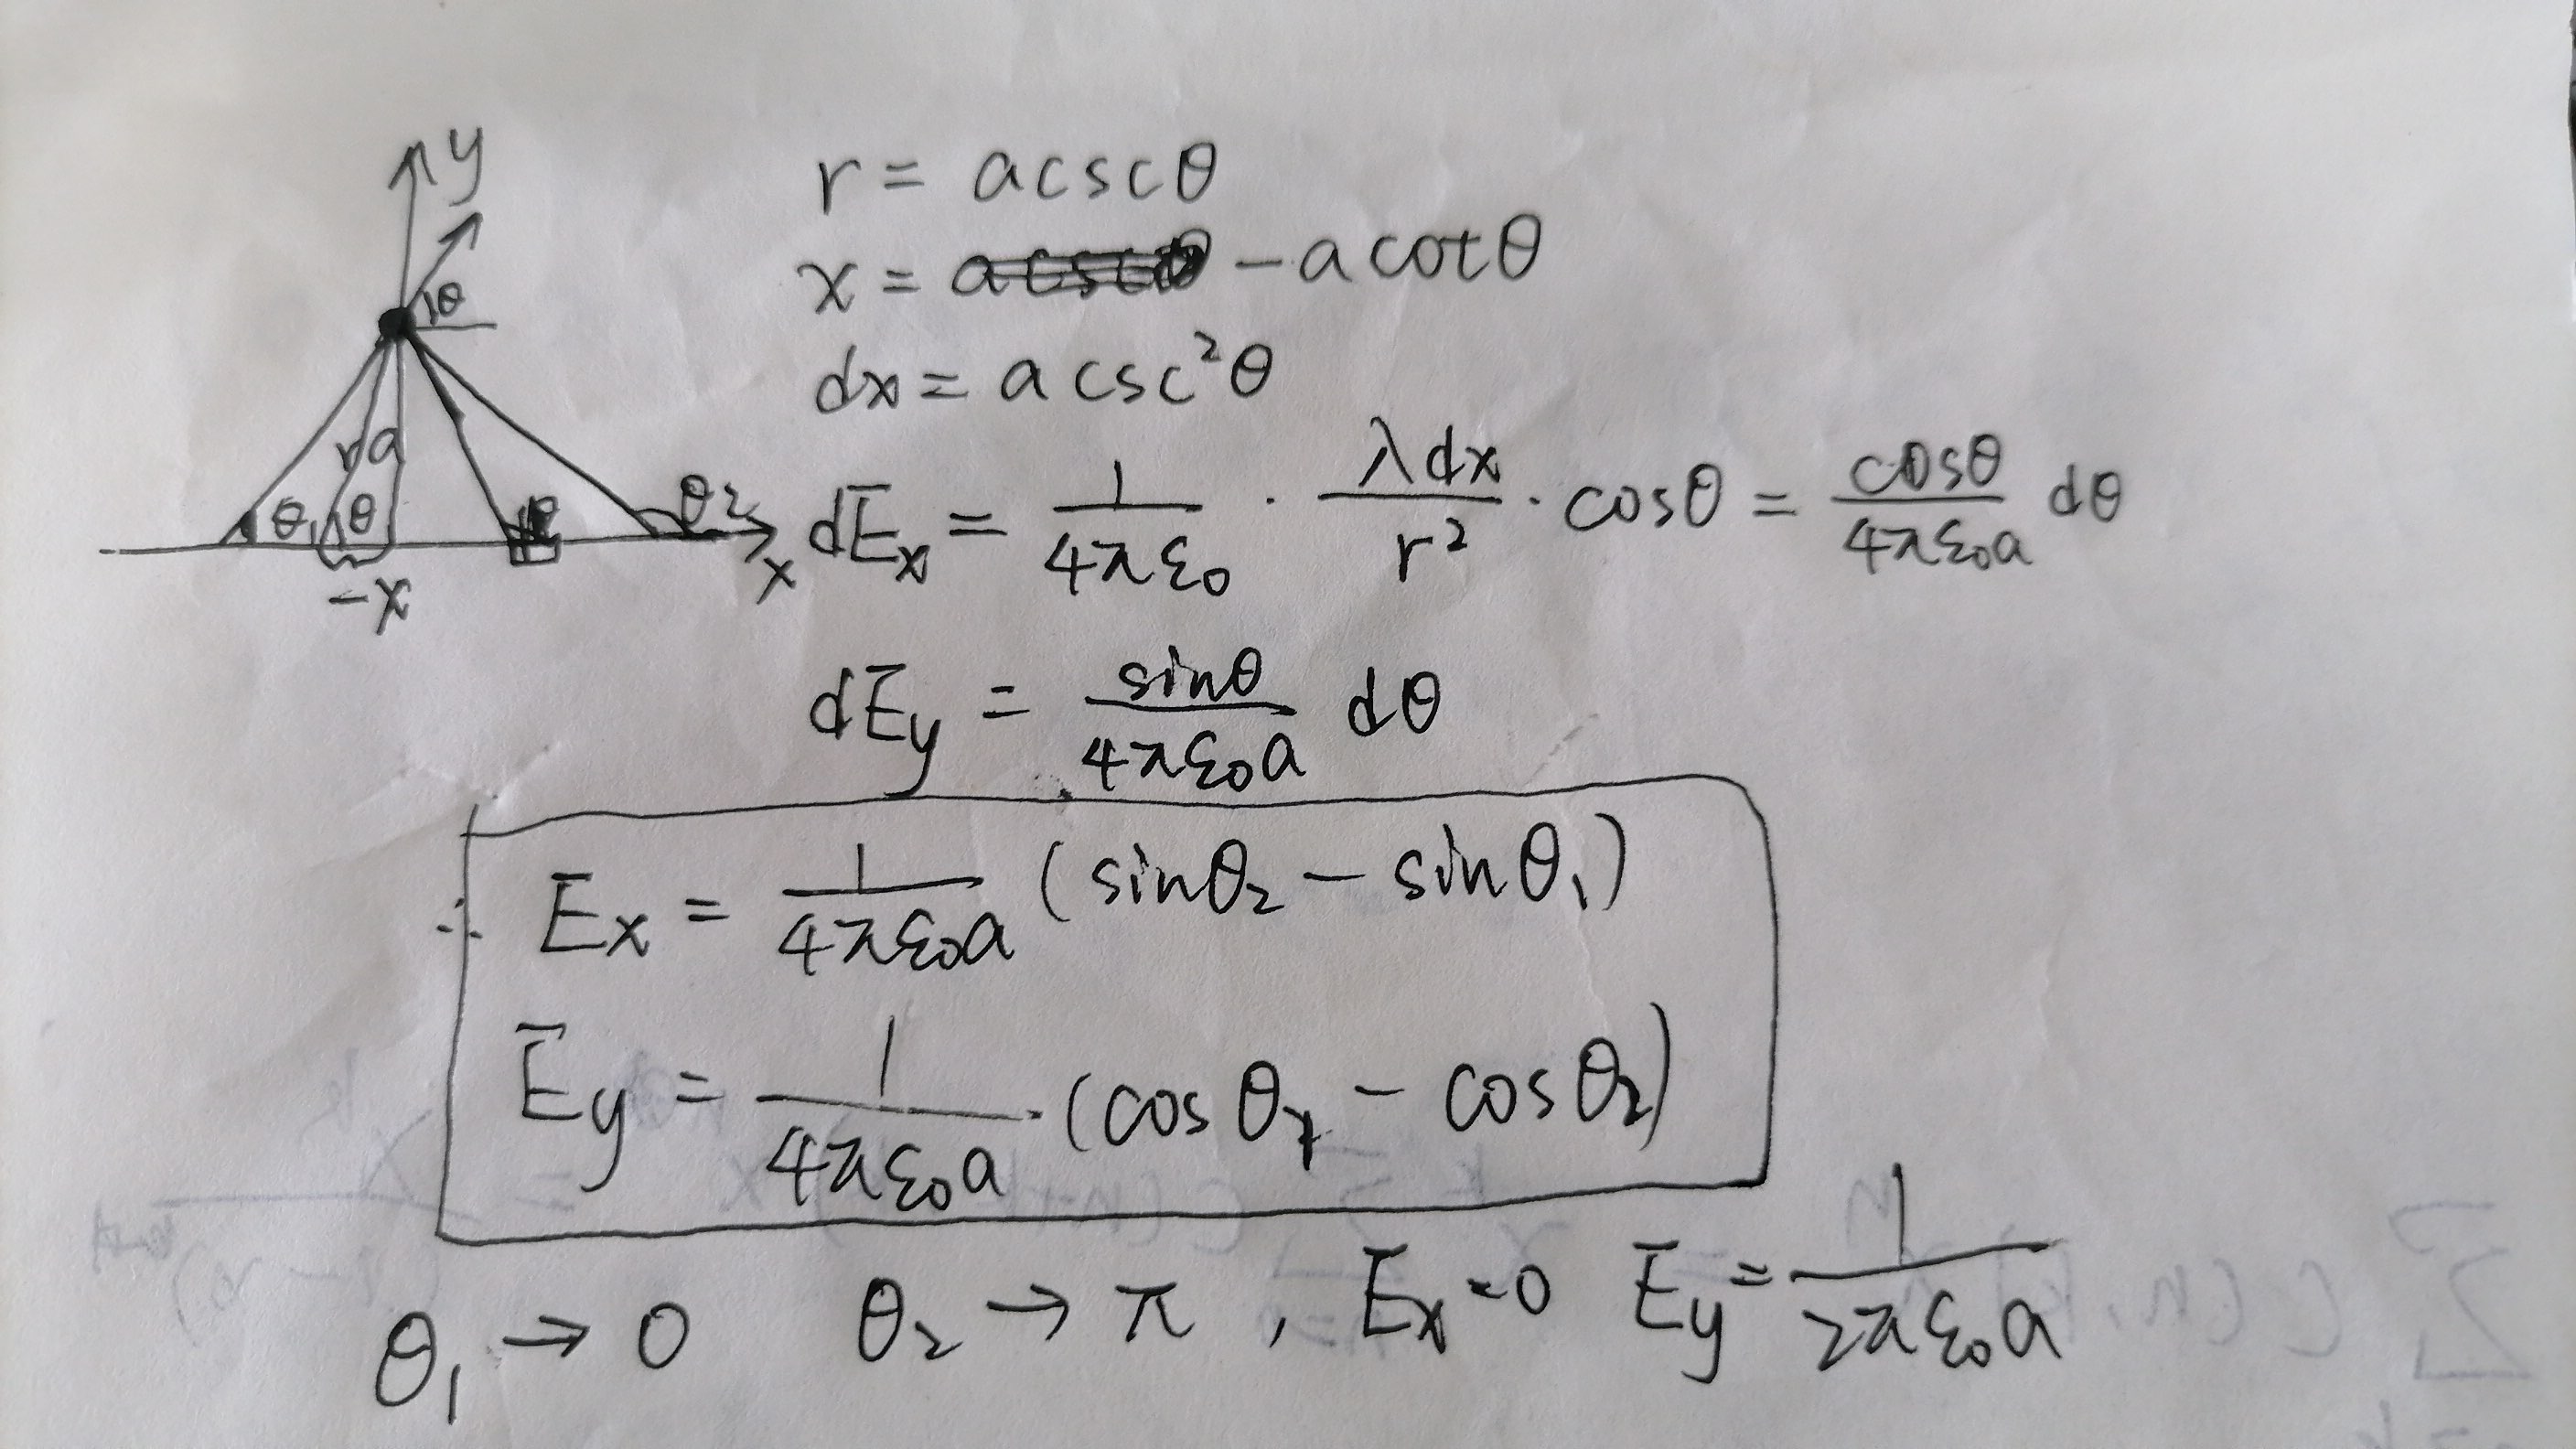 y
θ
r a
θ₁ θ θ₂
x
-x
r = a cscθ
x = -a cotθ
dx = a csc²θ
dEx = 1/(4πε₀) · λdx/r² · cosθ = cosθ/(4πε₀a) dθ
dEy = sinθ/(4πε₀a) dθ
∴ Ex = 1/(4πε₀a) (sinθ₂ - sinθ₁)
Ey = 1/(4πε₀a) · (cosθ₁ - cosθ₂)
θ₁ → 0 θ₂ → π , Ex = 0 Ey = 1/(2πε₀a)